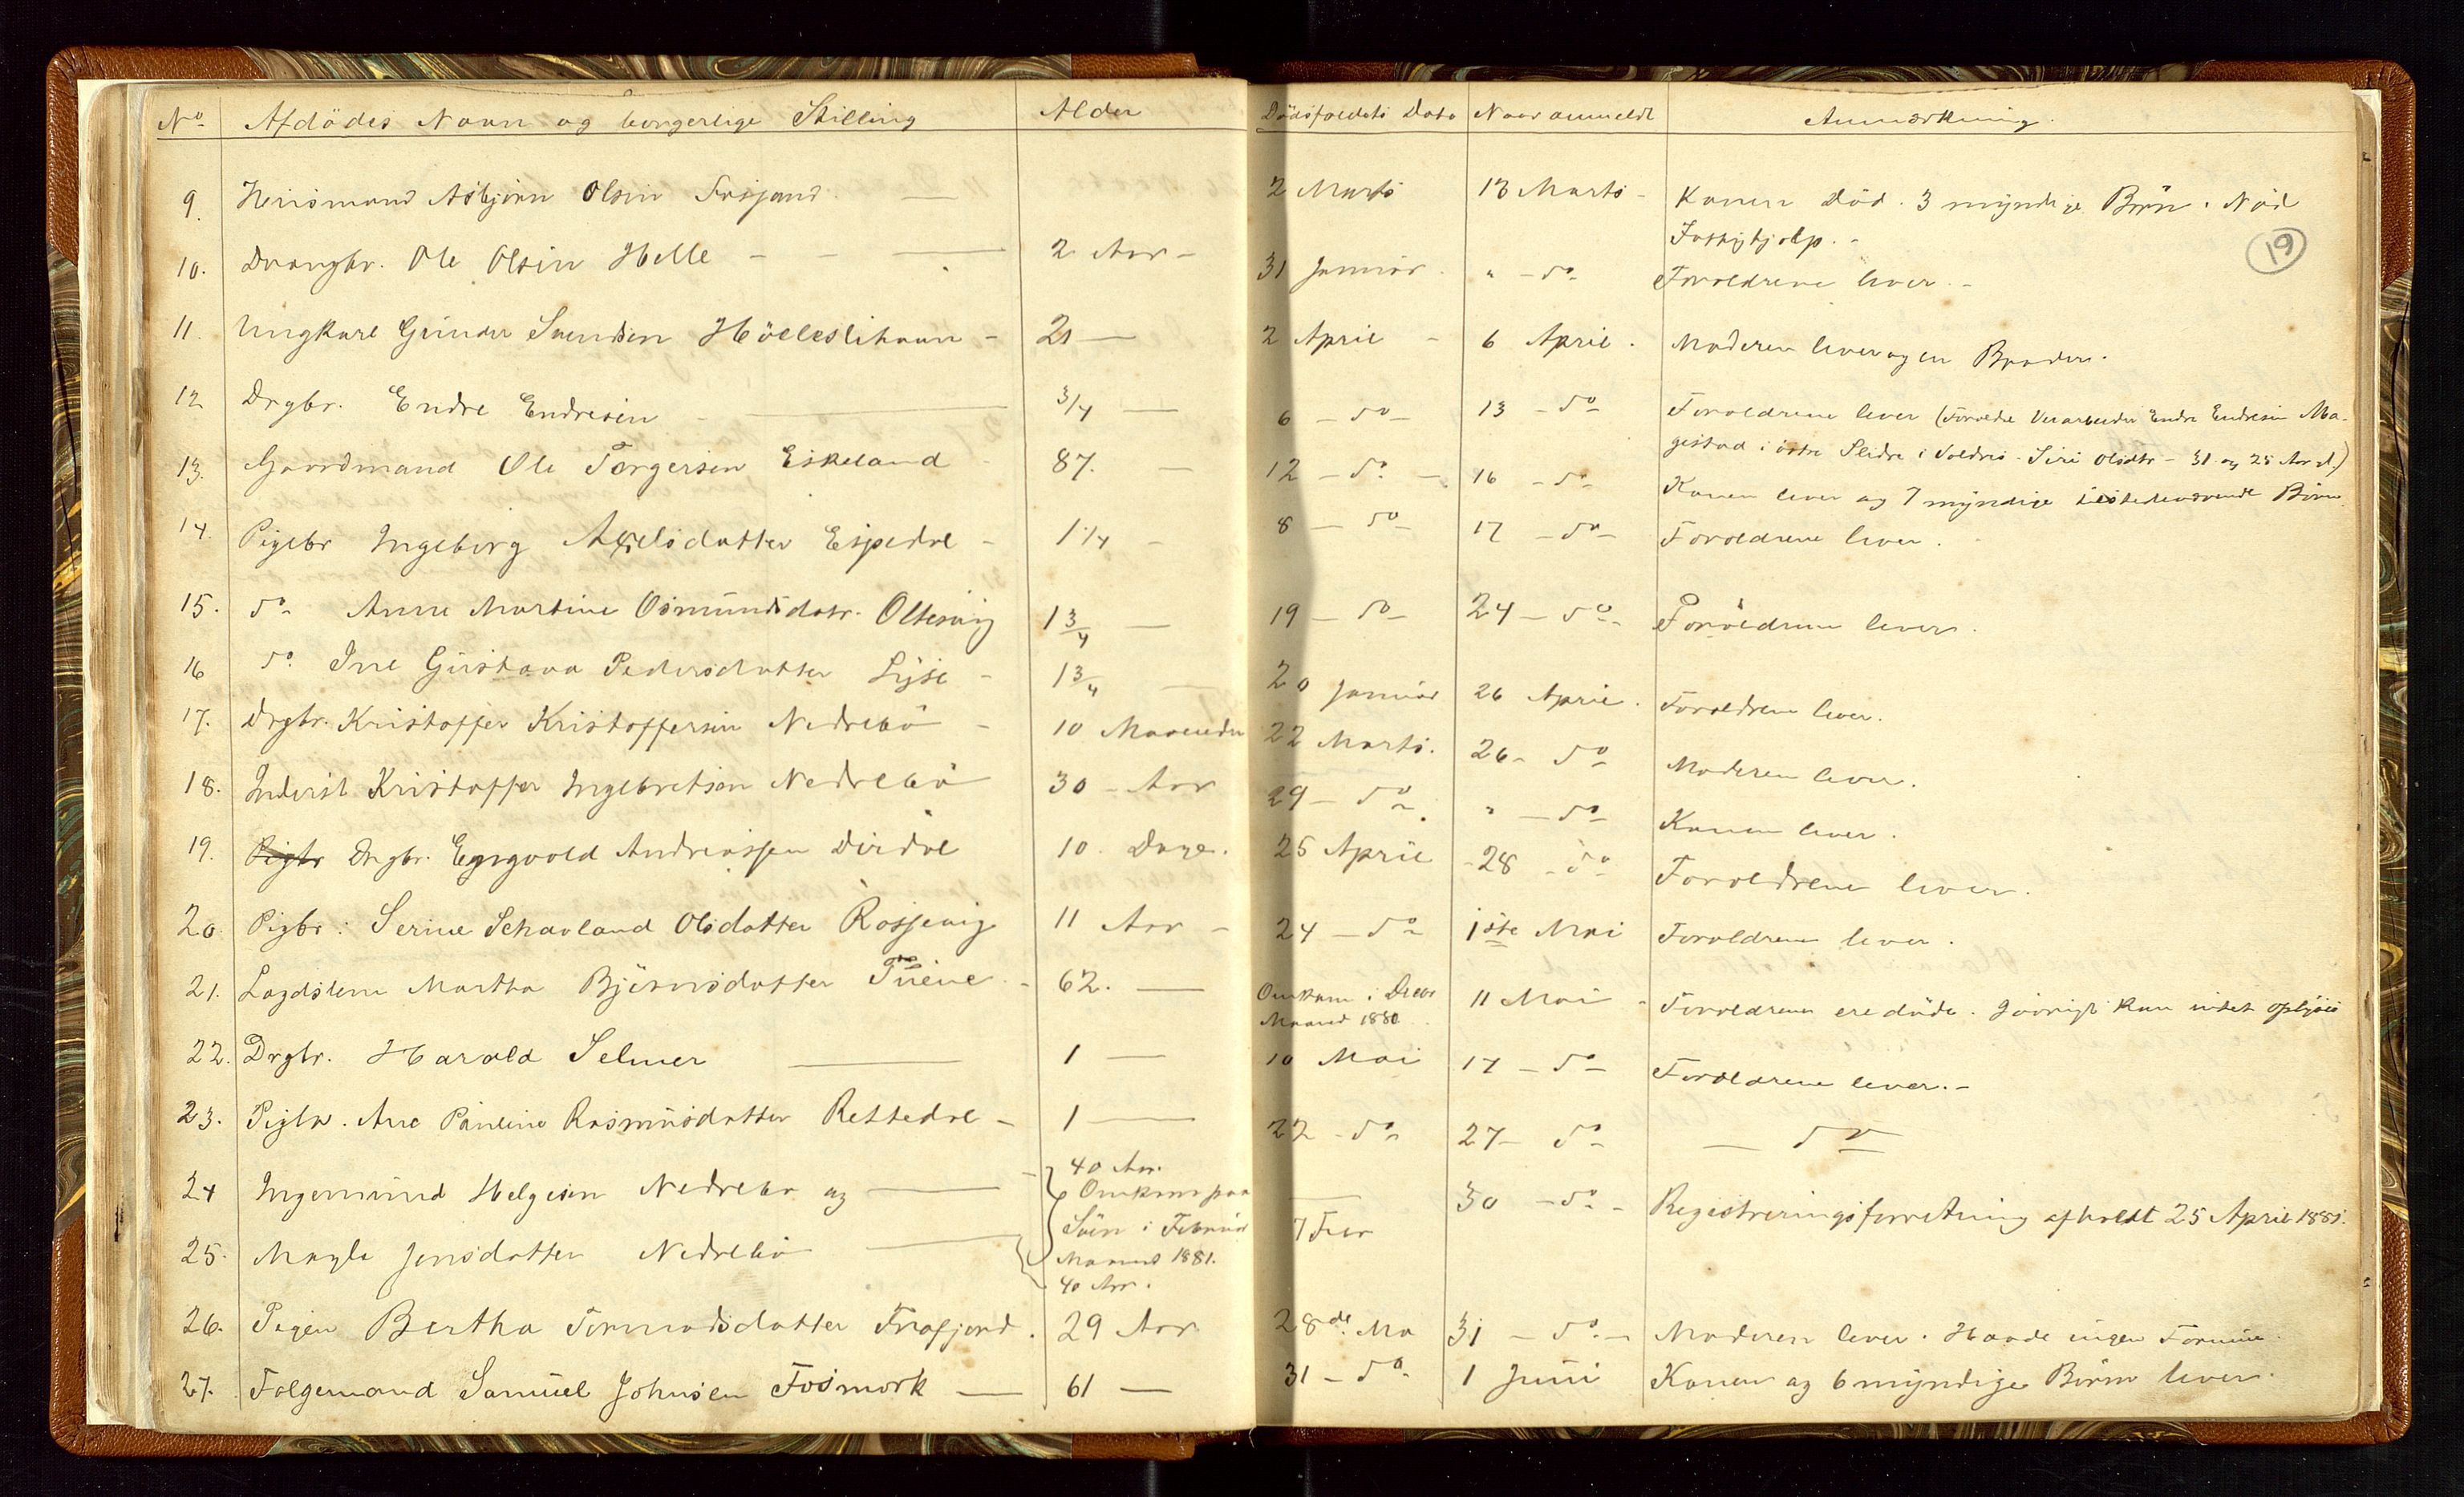 No Afdödes Navn og borgerlige Stilling Alder Dödsfaldets Dato Naar anmeldt Anmærkning.
9. Huusmand Asbjörn Olsen — 2 Marts 13 Marts - Konen Död. 3 myndige Börn. Nöd
Fattighjælp. -
19
10. Drengbr. Ole Olsen Helle - - — 2 Aar - 31 Januar " - do Forældrene lever. -
11. Ungkarl Gunder Svendsen Hölleslihavn - 21 — 2 April - 6 April. Moderen lever og en Broder.
12 Drgbr. Endre Endresen - — 3/4 — 6 - do - 13 - do Forældrene lever (Forældre Endre Endresen Ma-
gestad i östre Slidre i Valdres - Siri Olsdtr - 31 og 25 Aar gl.)
13. Gaardmand Ole Torgersen Eskeland - 87. — 12 - do - 16 - do Konen lever og 7 myndige tilstedeværende Börn.
14. Pigebr Ingeborg Axelsdatter Espedal - 1 1/4 - 8 - do - 17 - do - Forældrene lever.
15. do Anne Martine Osmundsdatr. Oltesvig 1 3/4 — 19 - do - 24 - do - Forældrene lever.
16 do Ine Gustava Pedersdatter Lyse - 1 3/4 — 20 Januar 26 April. Forældrene lever.
17. Drgbr. Kristoffer Kristoffersen Nedrebö - 10 Maaneder 22 Marts. 26 - do Moderen lever.
18. Inderst Kristoffer Ingebretsen Nedrebö 30 - Aar 29 - do. " - do Konen lever.
19. Pigbr Drgbr. Engvald Andreassen Dirdal 10 Dage. 25 April - 28 - do Forældrene lever.
20. Pigbr: Serine Schavland Olsdatter Rossevig 11 Aar - 24 - do 1ste Mai Forældrene lever.
21. Lægdslem Martha Björnsdatter - 62. — Omkom i Decbr 11 Mai - Forældrene ere döde. Iövrigt kan intet oplyses
Maaned 1880
22. Drgbr. Harald Selmer — 1 — 10 Mai 17 - do - Forældrene lever. -
23. Pigbr. Ane Pauline Rasmusdatter Rettedal - 1 — 22 - do 27 - do — do
24 Ingemund Helgesen Nedrebö og — 40 Aar. — 30 - do - Registreringsforretning afholdt 25 April 1881.
Omkom paa
Söen i Februar 7 Febr
25. Magla Jensdatter Nedrebö — Maaned 1881.
40 Aar.
26. Pigen Bertha Tormodsdatter Frafjord. 29 Aar 28de Ma 31 - do - Moderen lever. Havde ingen Formue.
27. Folgemand Samuel Johnsen Fosmork — 61 — 31 - do 1 Juni Konen og 6 myndige Börn lever.